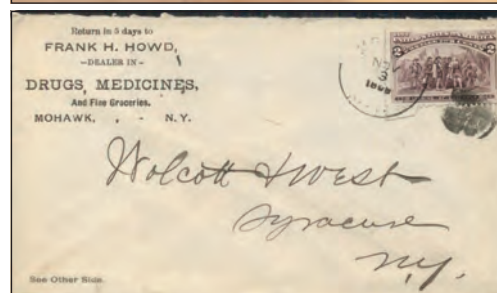 Return in 5 days to
FRANK H. HOWD,
-DEALER IN-
DRUGS, MEDICINES,
And Fine Groceries.
MOHAWK, , - N. Y.
2 2
Wolcott & West
Syracuse
N.Y.
See Other Side.